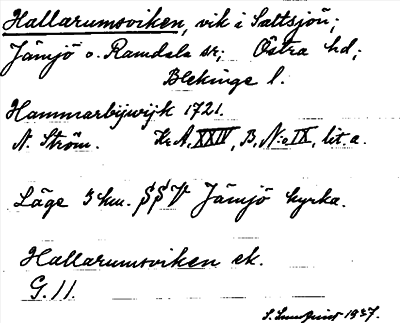 Hallarumsviken, vik i Saltsjön;
Jämjö o. Ramdala sr; Östra hd;
Blekinge l.
Hammarbijwijk 1721.
N. Ström. Kr A, XXIV, B, N:o IX, lit. a.
Läge 3 km. SSV Jämjö kyrka.
Hallarumsviken ek.
G. 11.
S. Lundquist 1937.